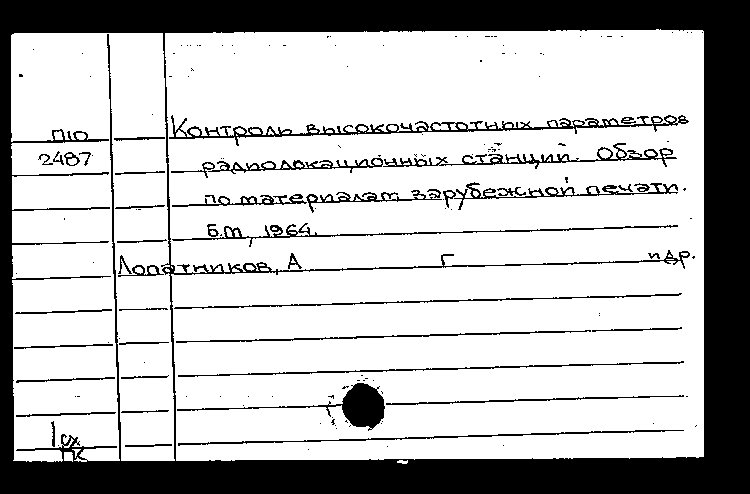 П10
2487
Контроль высокочастотных параметров
радиолокационных станций. Обзор
по материалам зарубежной печати.
Б.м, 1964.
Лопатников, А Г и др.
1 сх
ПК